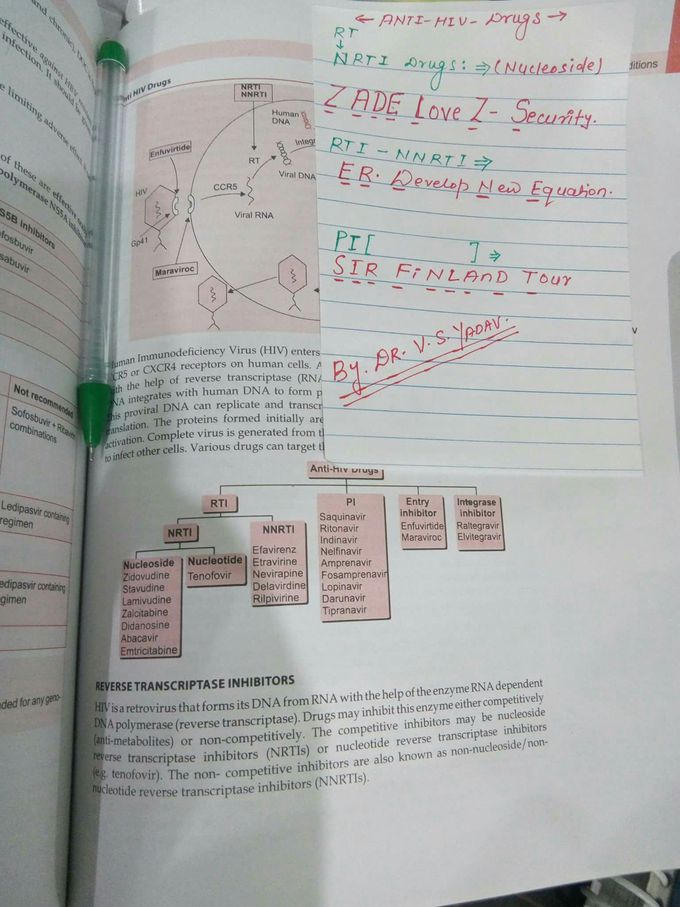 ← ANTI-HIV-Drugs →
RT
↓
NRTI Drugs: ⇒ (Nucleoside)
Z ADE Love Z - Security.
RTI - NNRTI ⇒
ER. Develop New Equation.
PI [ ] ⇒
SIR FiNLAnD Tour
By. DR. V. S. YADAV.
ditions
and chronic),
effective against HBV
infection. It should be
e limiting adverse effect
of these are effective
polymerase NS5A
S5B inhibitors
fosbuvir
sabuvir
Not recommended
Sofosbuvir + Ribavirin
combinations
Ledipasvir containing
regimen
edipasvir containing
gimen
ded for any geno-
nti HIV Drugs
NRTI
NNRTI
Human
DNA
Integr
Enfuvirtide
RT
Viral DNA
HIV
CCR5
Viral RNA
Gp41
Maraviroc
uman Immunodeficiency Virus (HIV) enters
CR5 or CXCR4 receptors on human cells. A
ith the help of reverse transcriptase (RNA
NA integrates with human DNA to form p
his proviral DNA can replicate and transcr
anslation. The proteins formed initially are
activation. Complete virus is generated from t
to infect other cells. Various drugs can target t
Anti-HIV Drugs
RTI
PI
Entry
inhibitor
Integrase
inhibitor
NRTI
NNRTI
Saquinavir
Ritonavir
Indinavir
Nelfinavir
Amprenavir
Fosamprenavir
Lopinavir
Darunavir
Tipranavir
Enfuvirtide
Maraviroc
Raltegravir
Elvitegravir
Nucleoside
Zidovudine
Stavudine
Lamivudine
Zalcitabine
Didanosine
Abacavir
Emtricitabine
Nucleotide
Tenofovir
Efavirenz
Etravirine
Nevirapine
Delavirdine
Rilpivirine
REVERSE TRANSCRIPTASE INHIBITORS
HIV is a retrovirus that forms its DNA from RNA with the help of the enzyme RNA dependent
DNA polymerase (reverse transcriptase). Drugs may inhibit this enzyme either competitively
(anti-metabolites) or non-competitively. The competitive inhibitors may be nucleoside
reverse transcriptase inhibitors (NRTIs) or nucleotide reverse transcriptase inhibitors
(e.g. tenofovir). The non- competitive inhibitors are also known as non-nucleoside/non-
nucleotide reverse transcriptase inhibitors (NNRTIs).